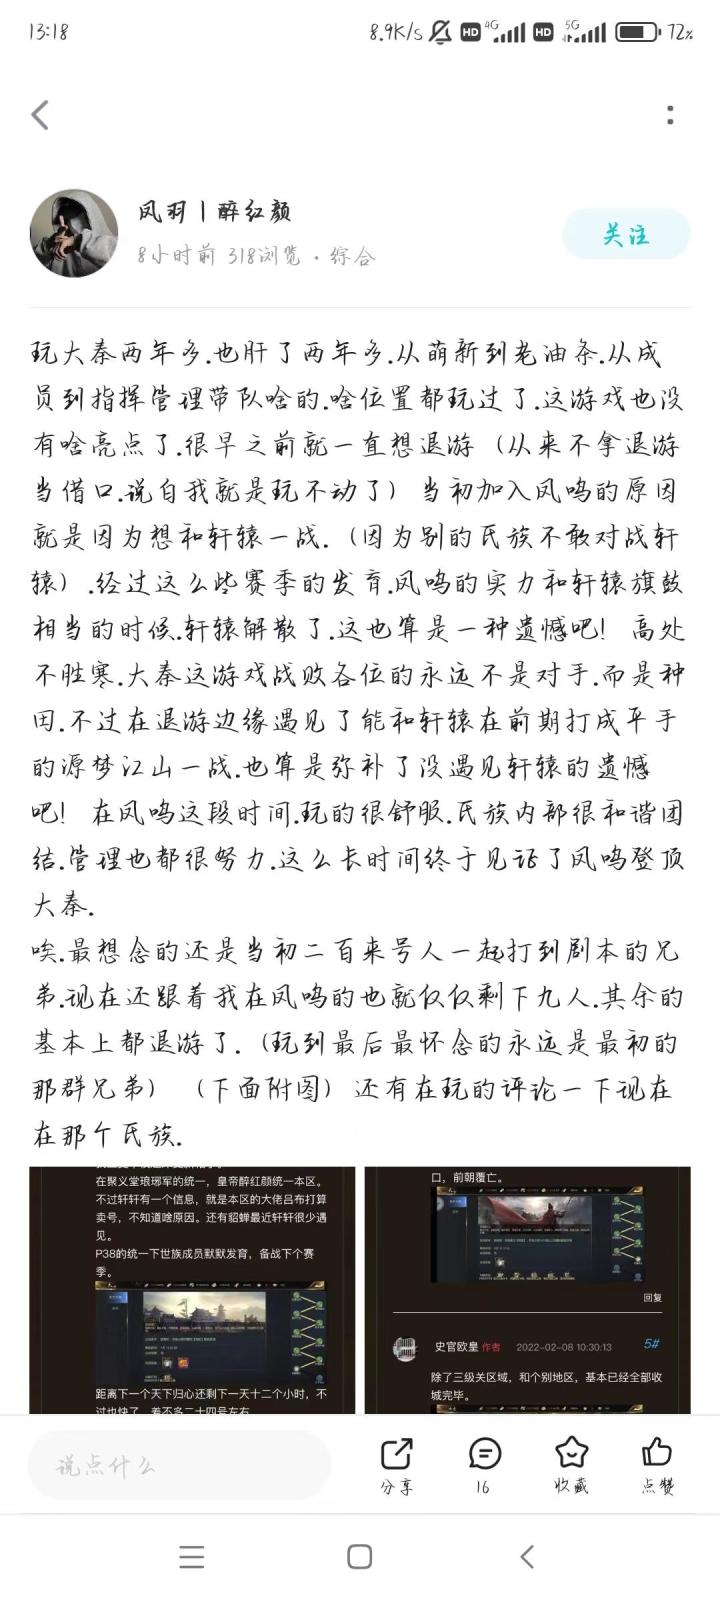 13:18
8.9K/s HD 4G HD 5G 72%
凤羽丨醉红颜
8小时前 318浏览 · 综合
关注
玩大秦两年多.也肝了两年多.从萌新到老油条.从成
员到指挥管理带队啥的.啥位置都玩过了.这游戏也没
有啥亮点了.很早之前就一直想退游（从来不拿退游
当借口.说白我就是玩不动了）当初加入凤鸣的原因
就是因为想和轩辕一战.（因为别的氏族不敢对战轩
辕）.经过这么些赛季的发育.凤鸣的实力和轩辕旗鼓
相当的时候.轩辕解散了.这也算是一种遗憾吧！高处
不胜寒.大秦这游戏战败各位的永远不是对手.而是种
田.不过在退游边缘遇见了能和轩辕在前期打成平手
的源梦江山一战.也算是弥补了没遇见轩辕的遗憾
吧！在凤鸣这段时间.玩的很舒服.氏族内部很和谐团
结.管理也都很努力.这么长时间终于见证了凤鸣登顶
大秦.
唉.最想念的还是当初二百来号人一起打到剧本的兄
弟.现在还跟着我在凤鸣的也就仅仅剩下九人.其余的
基本上都退游了.（玩到最后最怀念的永远是最初的
那群兄弟）（下面附图）还有在玩的评论一下现在
在那个氏族.
在聚义堂琅琊军的统一，皇帝醉红颜统一本区。
不过轩轩有一个信息，就是本区的大佬吕布打算
卖号，不知道啥原因。还有貂蝉最近轩轩很少遇
见。
P38的统一下世族成员默默发育，备战下个赛
季。
距离下一个天下归心还剩下一天十二个小时，不
过也快了，差不多二十四号左右
口，前朝覆亡。
回复
史官欧皇 作者 2022-02-08 10:30:13 5#
除了三级关区域，和个别地区，基本已经全部收
城完毕。
说点什么
分享
16
收藏
点赞